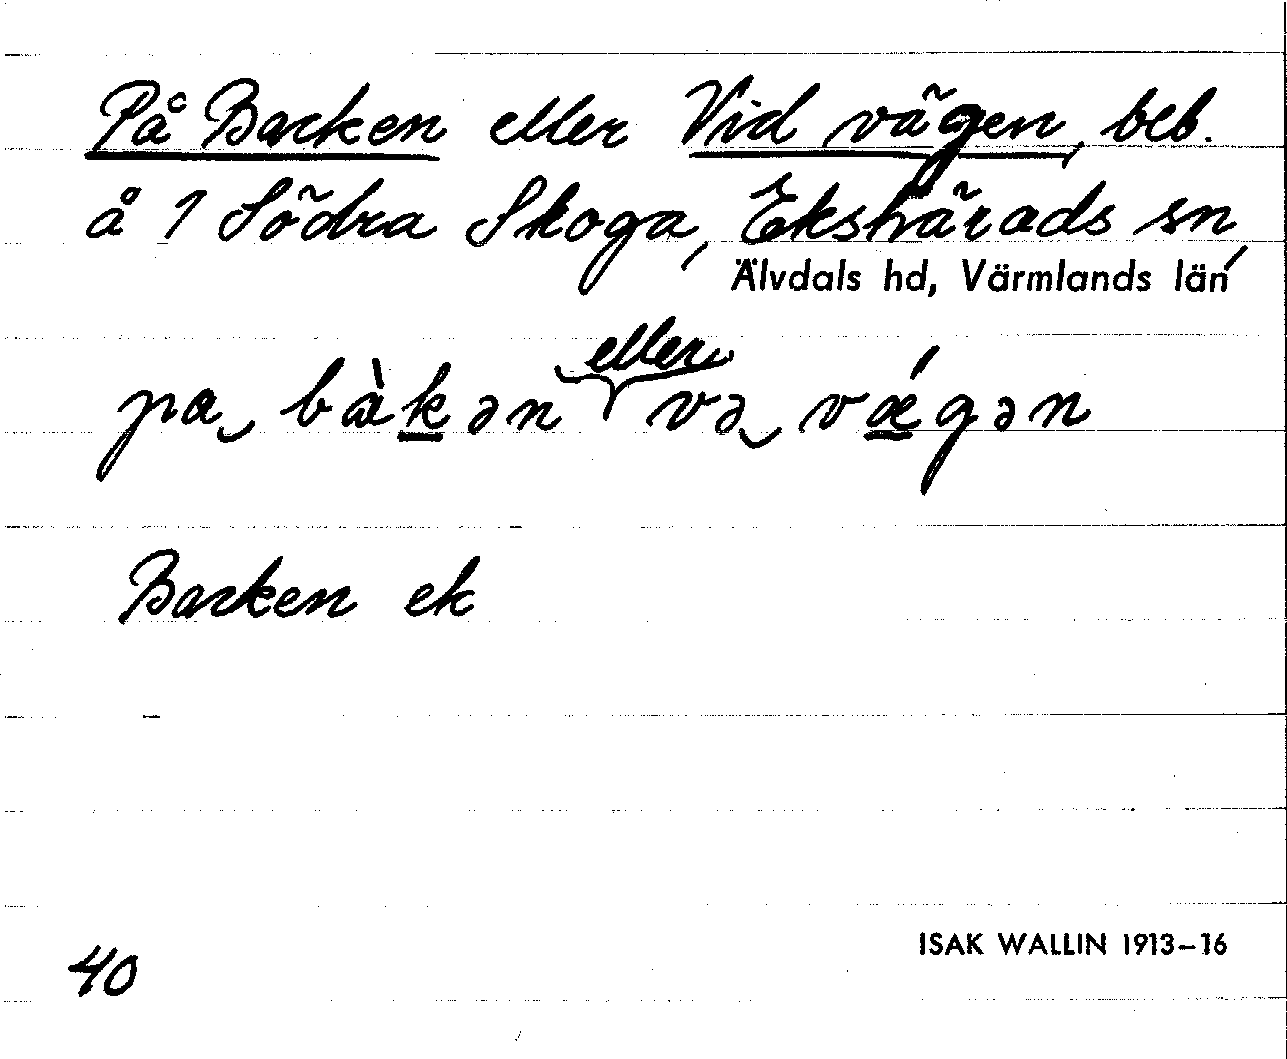 På Backen eller Vid vägen, beb.
å 1 Södra Skoga, Ekshärads sn,
Älvdals hd, Värmlands län
pa‿ bàk̲ən eller və‿ vǽ̲gən
Backen ek
ISAK WALLIN 1913–16
40